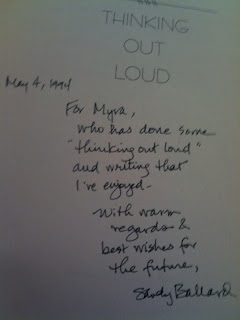 THINKING
OUT
LOUD
May 4, 1994
For Myra,
who has done some
"thinking out loud"
and writing that
I've enjoyed –
With warm
regards &
best wishes for
the future,
Sandy Ballard